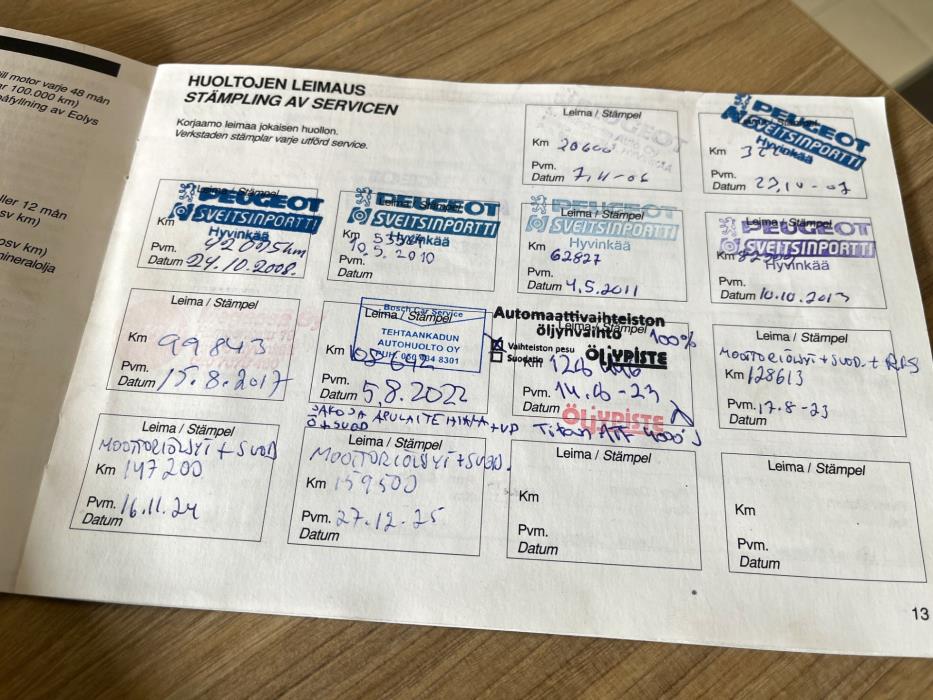 ill motor varje 48 mån
ar 100.000 km)
påfyllning av Eolys
ller 12 mån
sv km)
osv km)
mineralolja
HUOLTOJEN LEIMAUS
STÄMPLING AV SERVICEN
Korjaamo leimaa jokaisen huollon.
Verkstaden stämplar varje utförd service.
Leima / Stämpel
Km 20600
Pvm. 7.11-06
Datum
PEUGEOT
SVEITSINPORTTI
Hyvinkää
Km
Pvm.
Datum
Leima / Stämpel
PEUGEOT
SVEITSINPORTTI
Hyvinkää
Km
Pvm. 42005km
Datum 24.10.2008
Leima / Stämpel
PEUGEOT
SVEITSINPORTTI
Hyvinkää
Km
10.5. 2010
Pvm.
Datum
PEUGEOT
Leima / Stämpel
SVEITSINPORTTI
Hyvinkää
Km
62827
Pvm.
Datum 4.5.2011
Leima / Stämpel
PEUGEOT
SVEITSINPORTTI
Hyvinkää
Km
Pvm.
Datum 10.10.2013
Leima / Stämpel
Km 99843
Pvm.
Datum 15.8.2017
Bosch Car Service
Leima / Stämpel
TEHTAANKADUN
AUTOHUOLTO OY
Km
Pvm. 5.8.2022
Datum
JAKOJA APULAITE HIHNA + VP
Ö+SUOD
Automaattivaihteiston
öljynvaihto 100%
Leima / Stämpel
Vaihteiston pesu
Suodatin
ÖLJYPISTE
Km
Pvm. 14.6-23
Datum
ÖLJYPISTE
Titan ATF 4000
Leima / Stämpel
MOOTTORIÖLJYT + SUOD. +
Km 128613
Pvm. 17.8-23
Datum
Leima / Stämpel
MOOTTORIÖLJYT + SUOD
Km 147200
Pvm. 16.11.24
Datum
Leima / Stämpel
MOOTTORIÖLJYT + SUOD.
Km 159500
Pvm. 27.12.25
Datum
Leima / Stämpel
Km
Pvm.
Datum
Leima / Stämpel
Km
Pvm.
Datum
13